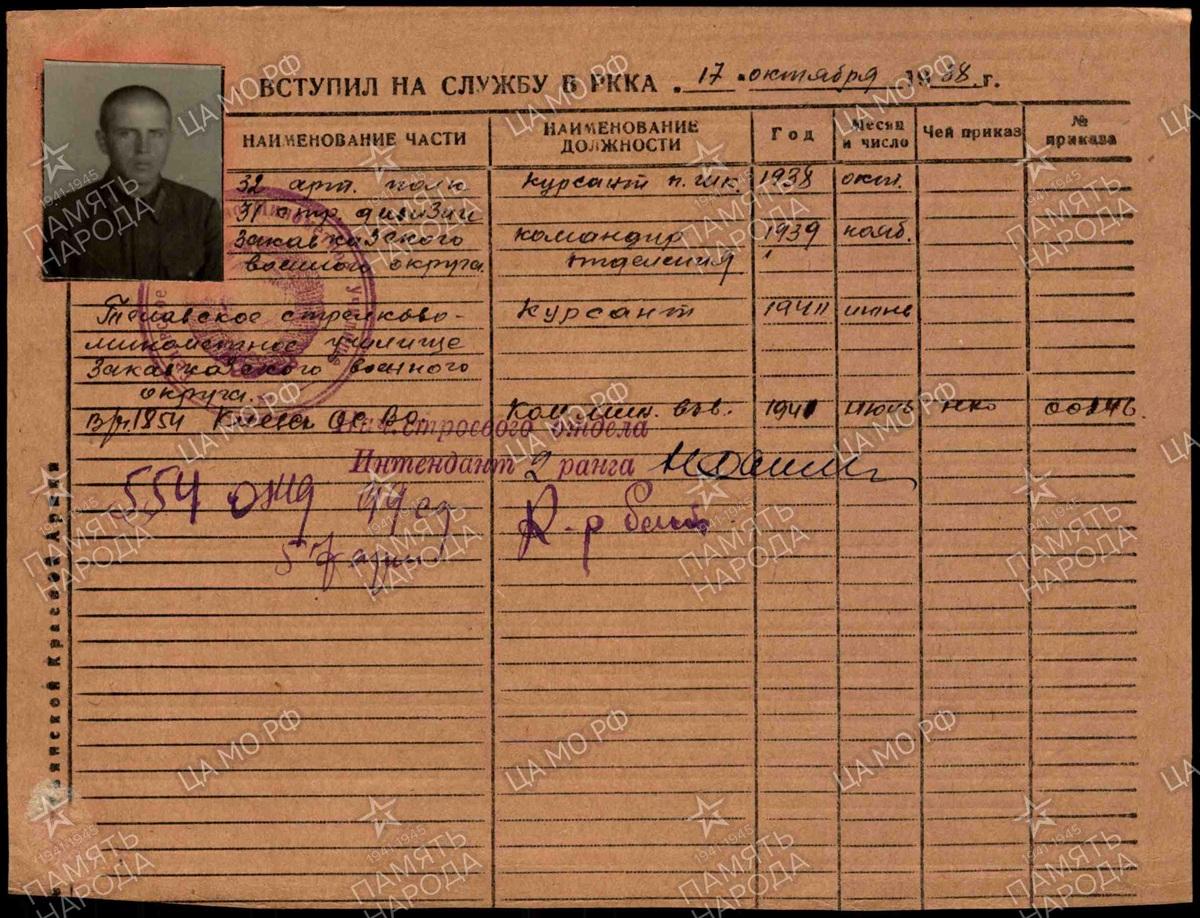 ВСТУПИЛ НА СЛУЖБУ В РККА 17 октября 1938 г.
НАИМЕНОВАНИЕ ЧАСТИ
НАИМЕНОВАНИЕ ДОЛЖНОСТИ
Год
Месяц и число
Чей приказ
№ приказа
32 арт. полк курсант п. шк. 1938 окт.
31 стр. дивизии
Закавказского командир 1939 нояб.
военного округа. отделения
Телавское стрелково- Курсант 1941 июнь
миномётное училище
Закавказского военного
округа.
В/ч 1854 Киев. Ос. В. О. Ком. мин. взв. 1941 июнь НКО
строевого отдела
Интендант 2 ранга
554 99 сд К-р
ЦА МО РФ
1941-1945
ПАМЯТЬ
НАРОДА
Красной Армии